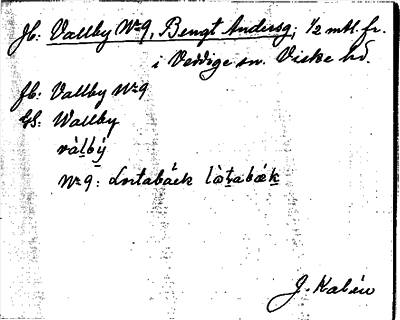 Jb: Vallby Nr 9, Bengt Andersg; 1/2 mtl. fr.
i Veddige sn. Viske hd.
Jb: Vallby Nr 9
GS: Wallby
Nr 9: Lortabäck
J. Kalén